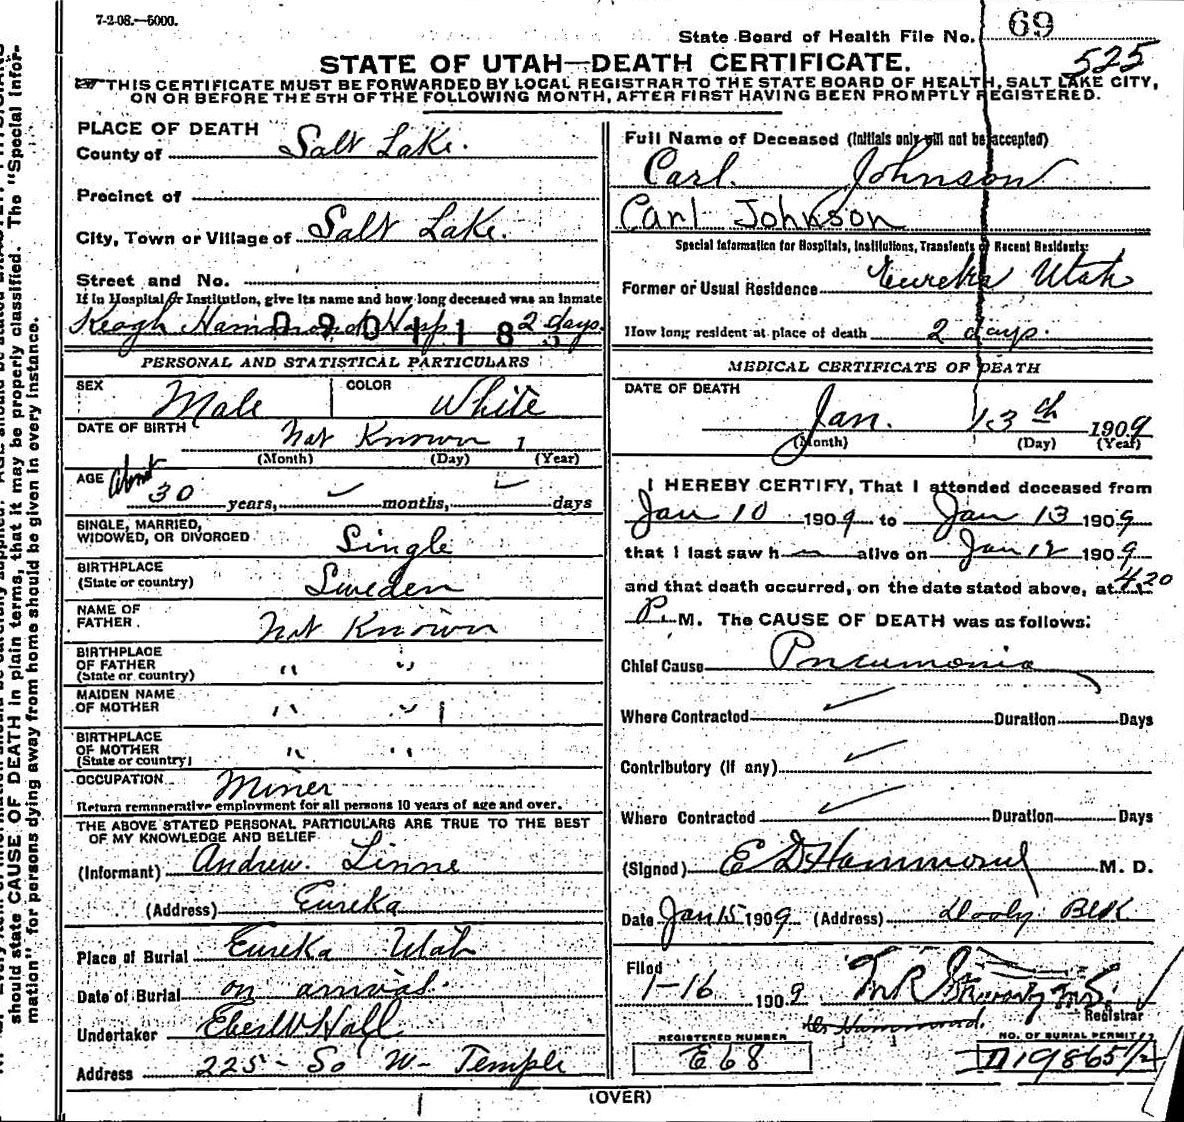 7-2-08.—5000.
State Board of Health File No. 69
525
STATE OF UTAH—DEATH CERTIFICATE.
THIS CERTIFICATE MUST BE FORWARDED BY LOCAL REGISTRAR TO THE STATE BOARD OF HEALTH, SALT LAKE CITY,
ON OR BEFORE THE 5TH OF THE FOLLOWING MONTH, AFTER FIRST HAVING BEEN PROMPTLY REGISTERED.
PLACE OF DEATH
County of Salt Lake.
Precinct of
City, Town or Village of Salt Lake.
Street and No.
If in Hospital or Institution, give its name and how long deceased was an inmate
Keogh Hammond Hosp. 2 days.
0901182
PERSONAL AND STATISTICAL PARTICULARS
SEX Male COLOR White
DATE OF BIRTH Not Known 1
(Month) (Day) (Year)
AGE About 30 years, months, days
SINGLE, MARRIED,
WIDOWED, OR DIVORCED Single
BIRTHPLACE
(State or country) Sweden
NAME OF
FATHER Not Known
BIRTHPLACE
OF FATHER " "
(State or country)
MAIDEN NAME
OF MOTHER " "
BIRTHPLACE
OF MOTHER " "
(State or country)
OCCUPATION Miner
Return remunerative employment for all persons 10 years of age and over.
THE ABOVE STATED PERSONAL PARTICULARS ARE TRUE TO THE BEST
OF MY KNOWLEDGE AND BELIEF
(Informant) Andrew Linne
(Address) Eureka
Place of Burial Eureka Utah
Date of Burial on arrival.
Undertaker Eber W Hall
Address 225 - So W- Temple
Full Name of Deceased (Initials only will not be accepted)
Carl. Johnson
Carl Johnson
Special Information for Hospitals, Institutions, Transients or Recent Residents:
Former or Usual Residence Eureka Utah
How long resident at place of death 2 days.
MEDICAL CERTIFICATE OF DEATH
DATE OF DEATH
Jan. 13th 1909
(Month) (Day) (Year)
I HEREBY CERTIFY, That I attended deceased from
Jan 10 1909 to Jan 13 1909
that I last saw h alive on Jan 12 1909
and that death occurred, on the date stated above, at 4.20
P. M. The CAUSE OF DEATH was as follows:
Chief Cause Pneumonia
Where Contracted Duration Days
Contributory (if any)
Where Contracted Duration Days
(Signed) E D Hammond M. D.
Date Jan 15 1909 (Address) Dooly Blk
Filed
1-16 1909
Registrar
REGISTERED NUMBER
E68
NO. OF BURIAL PERMIT
(OVER)
should state CAUSE OF DEATH in plain terms, that it may be properly classified. The "Special Infor-
mation" for persons dying away from home should be given in every instance.